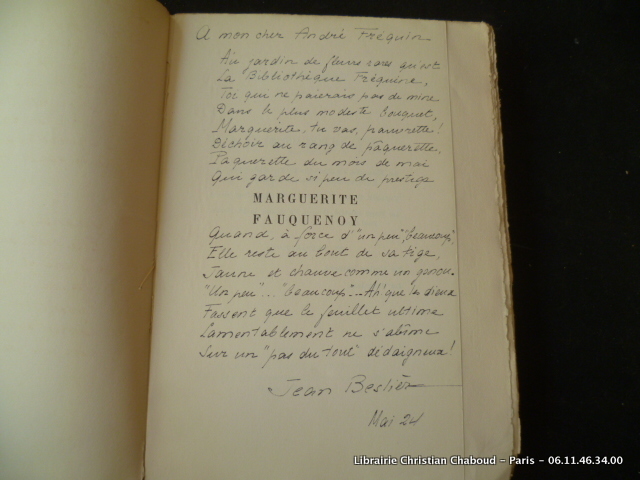 A mon cher André Fréquin
Au jardin de fleurs rares qu'est
La Bibliothèque Fréquine,
Toi qui ne paierais pas de mine
Dans le plus modeste bouquet,
Marguerite, tu vas, pauvrette!
Déchoir au rang de paquerette,
Paquerette du mois de mai
Qui garde si peu de prestige
MARGUERITE
FAUQUENOY
Quand, à force d'"un peu", "beaucoup",
Elle reste au bout de sa tige,
Jaune et chauve comme un genou.
"Un peu"... "beaucoup"... Ah! que les dieux
Fassent que le feuillet ultime
Lamentablement ne s'abîme
Sur un "pas du tout" dédaigneux!
Jean
Mai 24
Librairie Christian Chaboud - Paris - 06.11.46.34.00